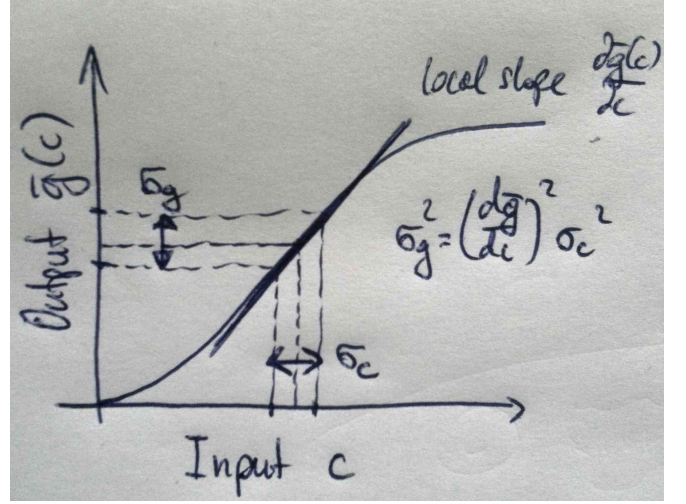 local slope dḡ(c)/dc
Output ḡ(c)
σg
σg² = (dḡ/dc)² σc²
σc
Input c